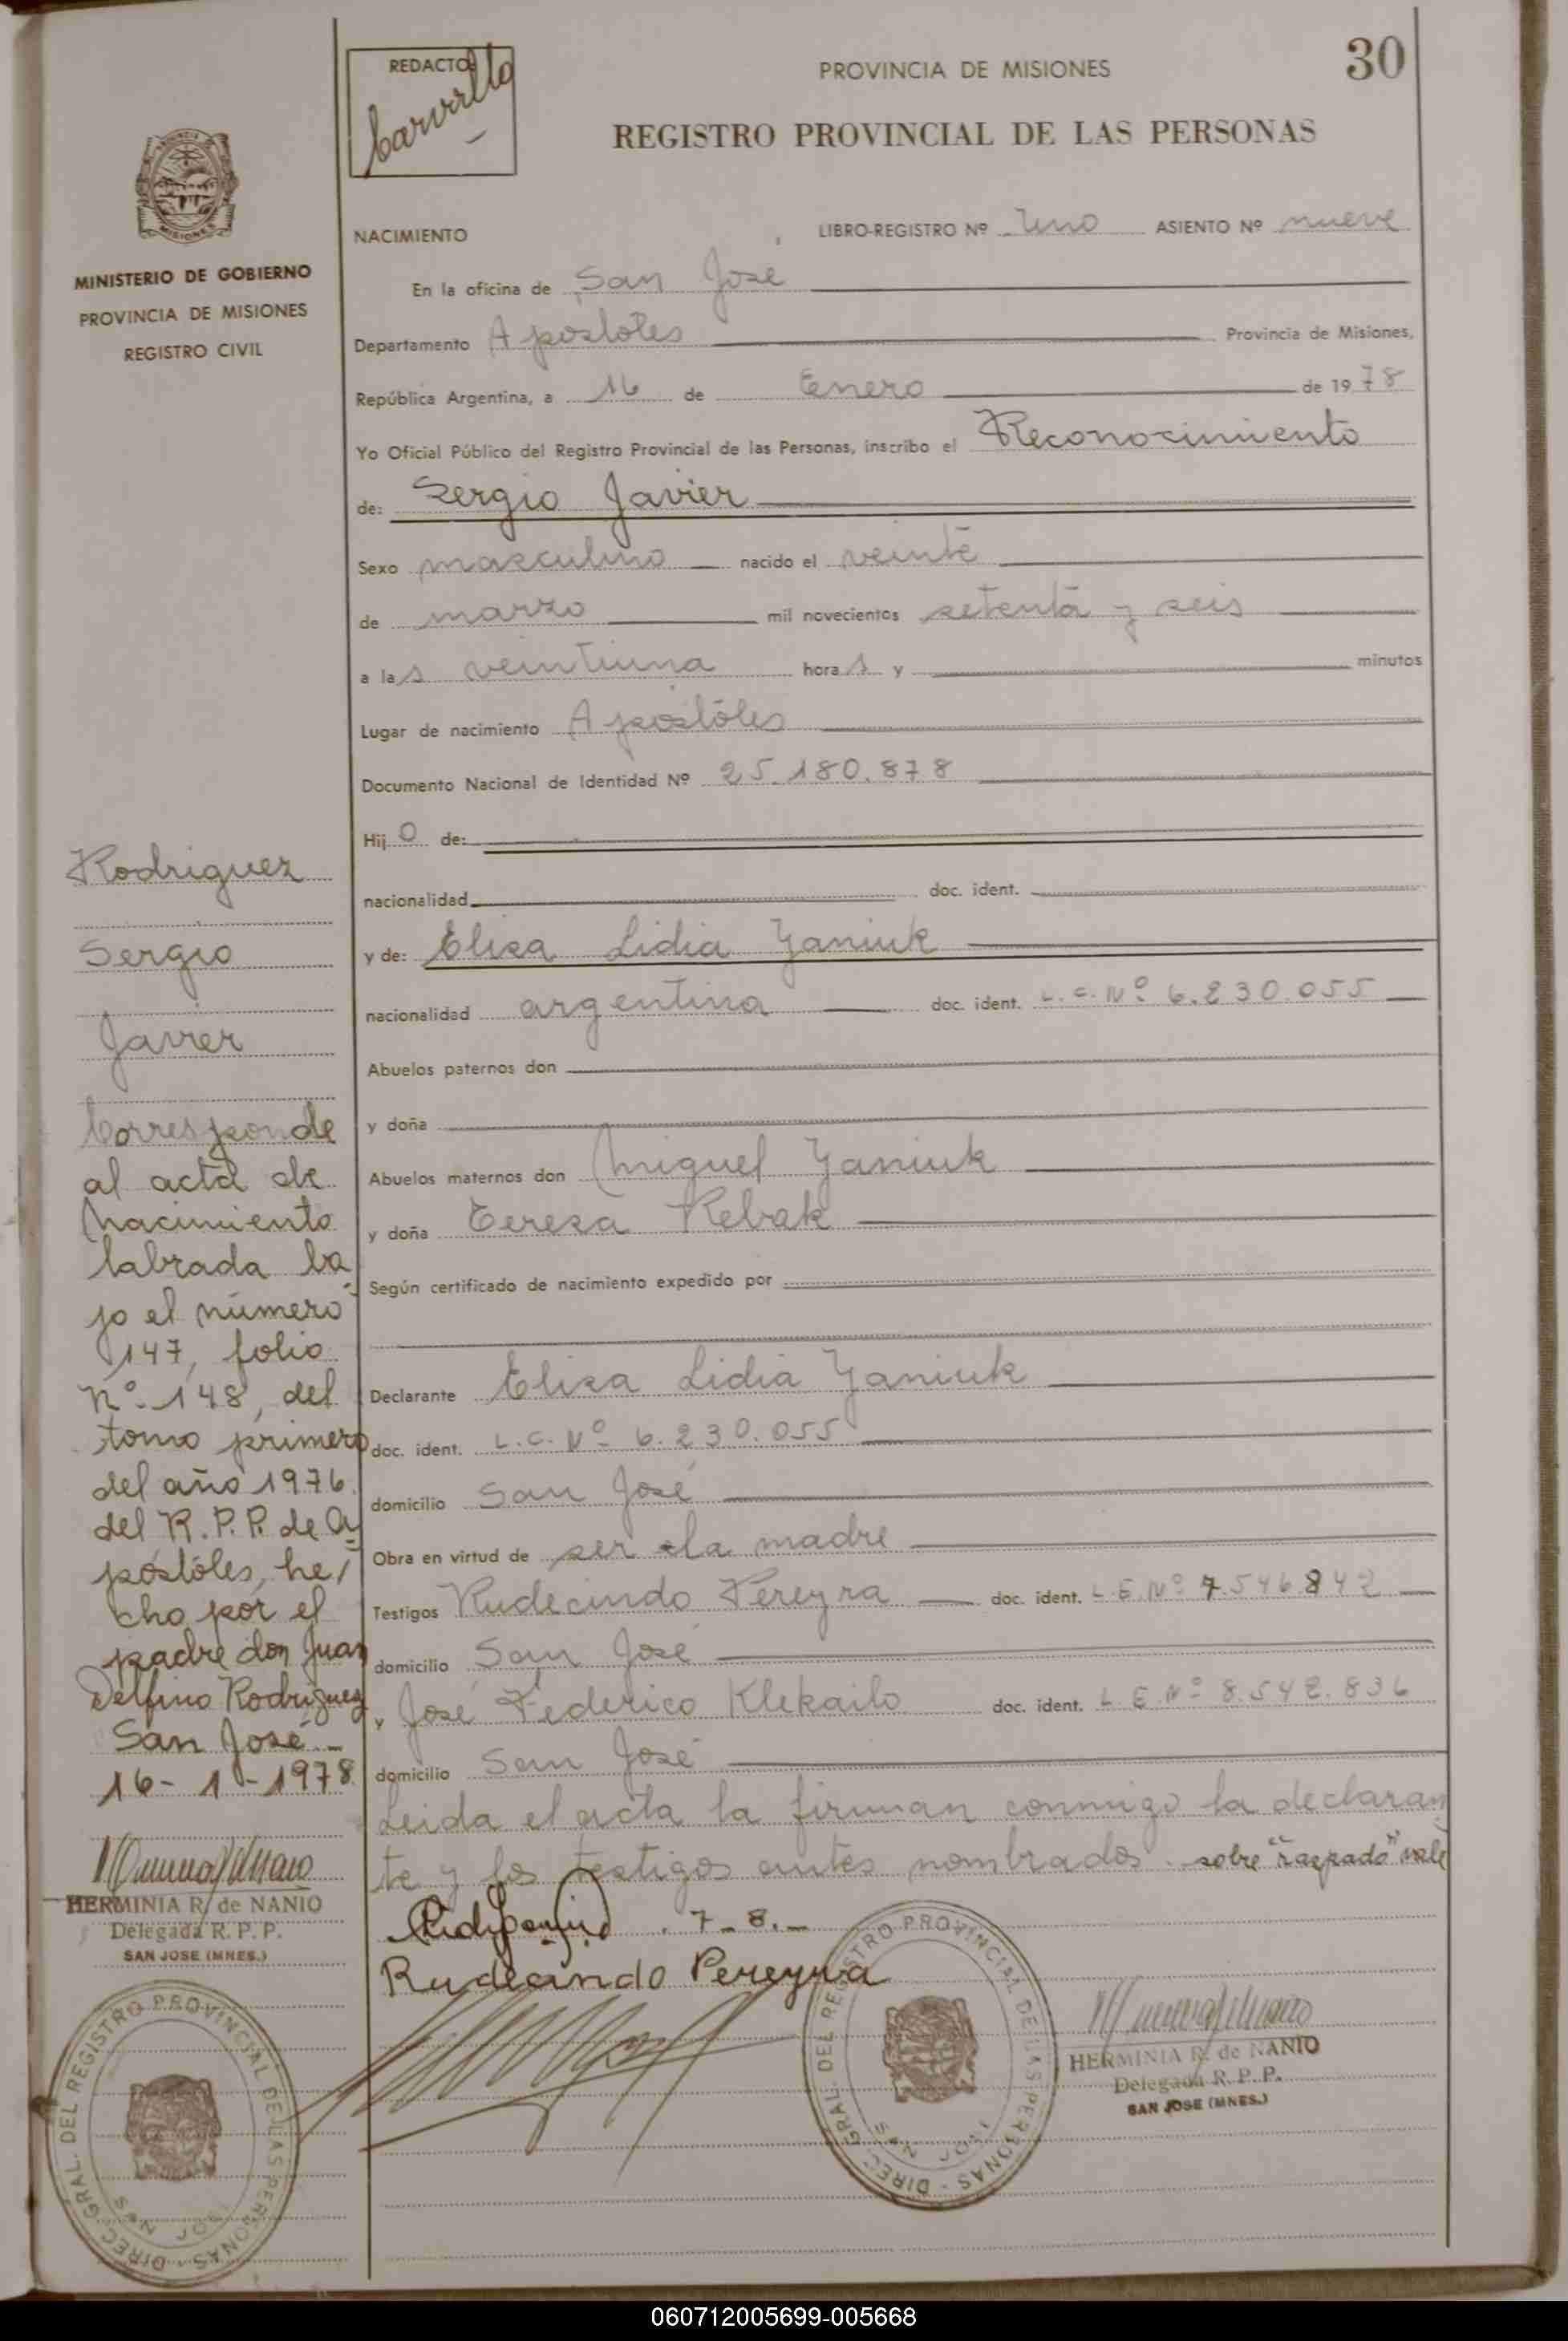 30
REDACTO
Carvallo
PROVINCIA DE MISIONES
REGISTRO PROVINCIAL DE LAS PERSONAS
MISIONES
MINISTERIO DE GOBIERNO
PROVINCIA DE MISIONES
REGISTRO CIVIL
NACIMIENTO LIBRO-REGISTRO Nº Uno ASIENTO Nº nueve
En la oficina de San José
Departamento Apóstoles Provincia de Misiones,
República Argentina, a 16 de Enero de 1978
Yo Oficial Público del Registro Provincial de las Personas, inscribo el Reconocimiento
de: Sergio Javier
Sexo masculino nacido el veinte
de marzo mil novecientos setenta y seis
a las veintiuna horas y minutos
Lugar de nacimiento Apóstoles
Documento Nacional de Identidad Nº 25.180.878
Hijo de:
nacionalidad doc. ident.
y de: Elisa Lidia Yaniuk
nacionalidad argentina doc. ident. L.C. Nº 6.230.055
Abuelos paternos don
y doña
Abuelos maternos don Miguel Yaniuk
y doña Teresa Rebak
Según certificado de nacimiento expedido por
Declarante Elisa Lidia Yaniuk
doc. ident. L.C. Nº 6.230.055
domicilio San José
Obra en virtud de ser la madre
Testigos Rudecindo Pereyra doc. ident. L.E. Nº 7.546.842
domicilio San José
y José Federico Klekailo doc. ident. L.E. Nº 8.542.836
domicilio San José
Leida el acta la firman conmigo la declaran
te y los testigos antes nombrados. sobre "raspado" vale
. 7-8.-
Rudecindo Pereyra
HERMINIA R. de NANIO
Delegada R. P. P.
SAN JOSE (MNES.)
DIREC. GRAL. DEL REGISTRO PROVINCIAL DE LAS PERSONAS - SAN JOSE
Rodriguez
Sergio
Javier
Corresponde
al acta de
Nacimiento
labrada ba
jo el número
147, folio
Nº 148, del
tomo primero
del año 1976.
del R.P.P. de A
póstoles, he/
cho por el
padre don Juan
Delfino Rodriguez
San José.-
16-1-1978.
HERMINIA R. de NANIO
Delegada R. P. P.
SAN JOSE (MNES.)
DIREC. GRAL. DEL REGISTRO PROVINCIAL DE LAS PERSONAS - SAN JOSE
060712005699-005668